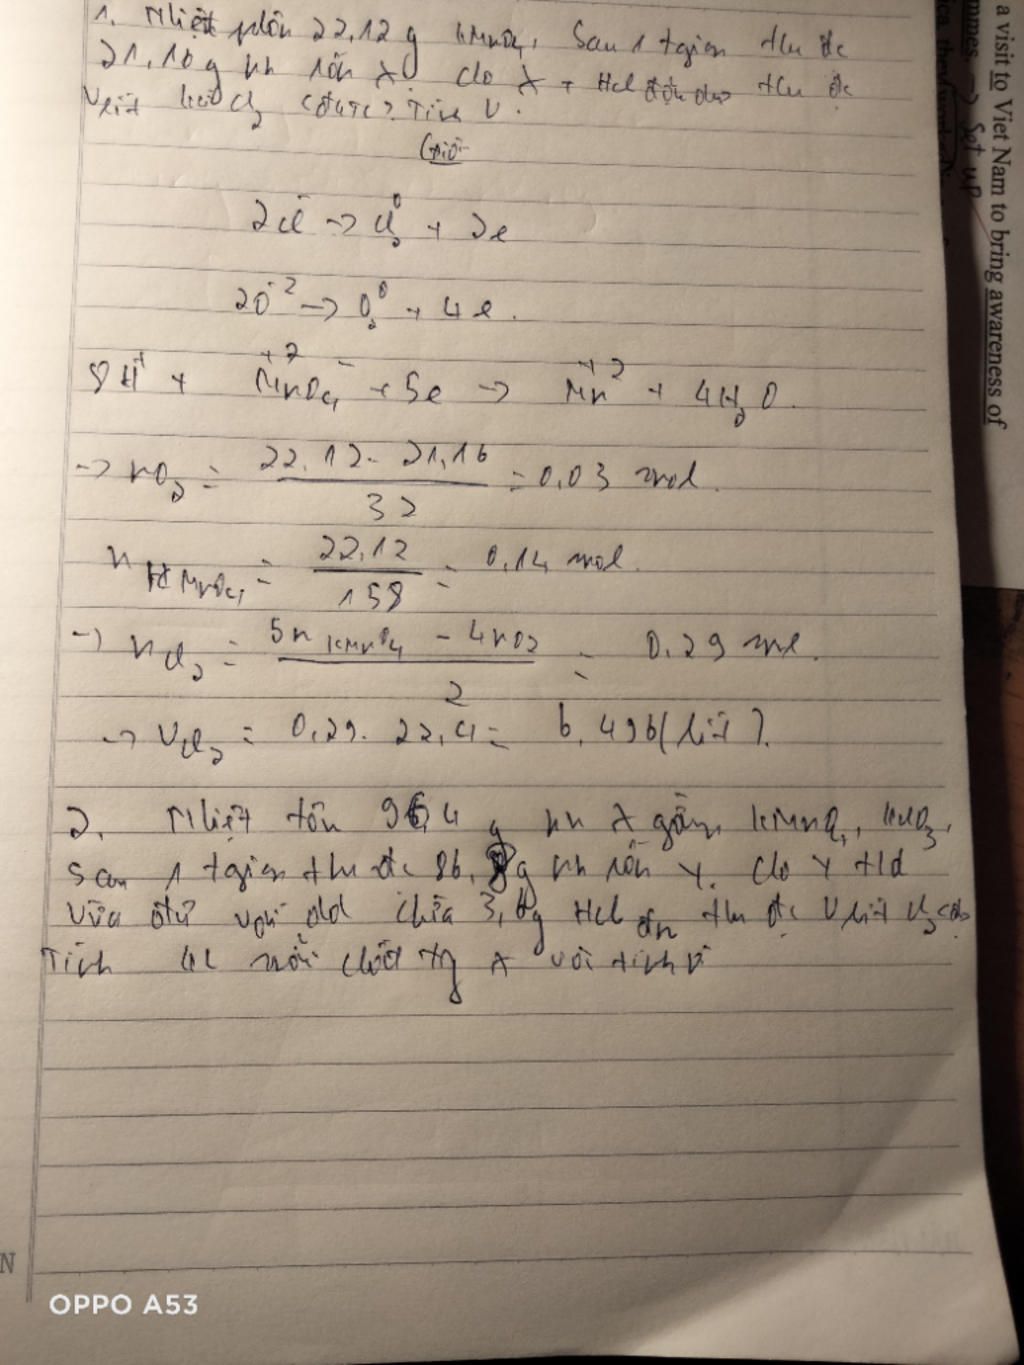 1. Nhiệt phân 22,12 g KMnO4, Sau 1 tgian thu đc
21,16 g hh rắn X. Cho X + HCl đặc dư thu đc
V lít khí Cl2 (đktc). Tính V.
Giải
2Cl- -> Cl2 0 + 2e
2O-2 -> O2 0 + 4e.
8H+ + MnO4- +7 + 5e -> Mn+2 + 4H2O.
-> nO2 = (22,12 - 21,16)/32 = 0,03 mol.
n KMnO4 = 22,12/158 = 0,14 mol.
-> nCl2 = (5nKMnO4 - 4nO2)/2 = 0,29 mol.
-> VCl2 = 0,29. 22,4 = 6,496 (lít).
2. Nhiệt 4 g hh X gồm KMnO4,
Sau 1 tgian thu đc g hh rắn Y. Cho Y td
vừa đủ với dd chứa HCl thu đc V lít Cl2
Tính KL mỗi chất tg X và tính V
a visit to Viet Nam to bring awareness of
-> Set up
N
OPPO A53